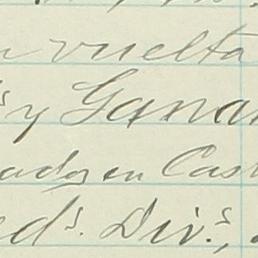 vuelta
s y Ganar
ados en Cast
eds. Div.s,